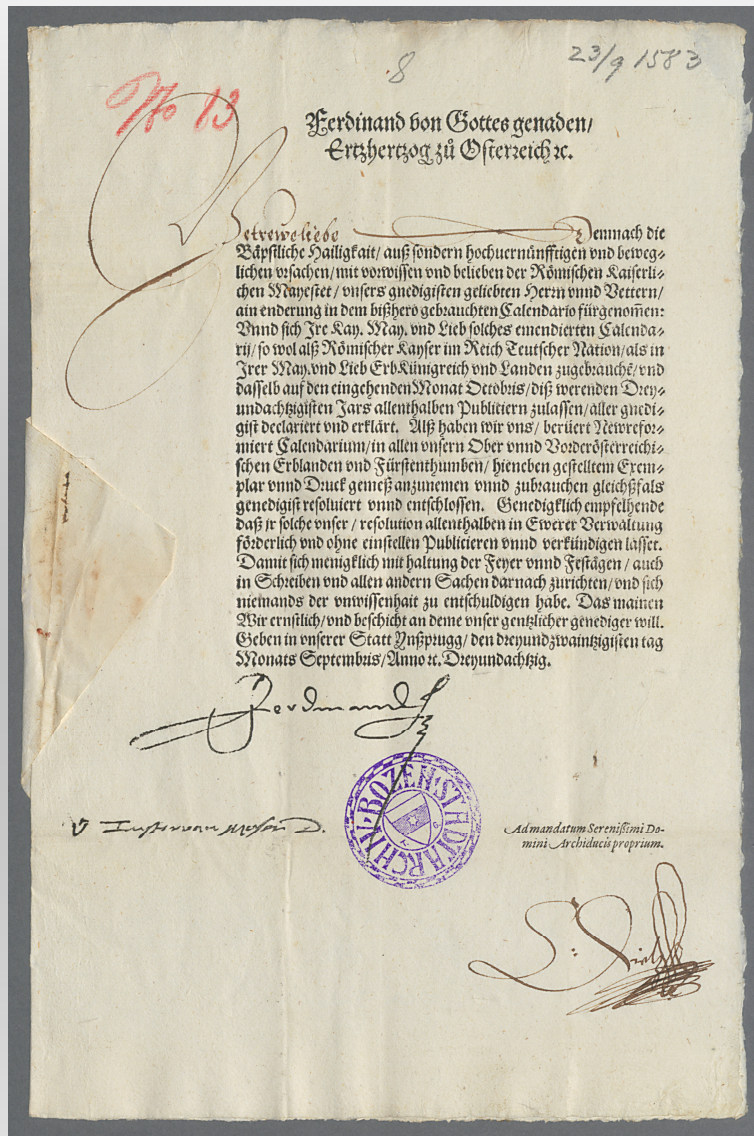 8
23/9 1583
No 13
Ferdinand von Gottes genaden/
Ertzhertzog zů Osterreich ꝛc.
Getrewe liebe Demnach die
Bäpstliche Hailigkait/ auß sondern hochuernünfftigen vnd beweg⸗
lichen vrsachen/ mit vorwissen vnd belieben der Römischen Kaiserli⸗
chen Mayestet/ vnsers gnedigisten geliebten Herrn vnnd Vettern/
ain enderung in dem bißhero gebrauchten Calendario fürgenom̄en:
Vnnd sich Ire Kay. May. vnd Lieb solches emendierten Calenda⸗
rij/ so wol alß Römischer Kayser im Reich Teutscher Nation/ als in
Irer May. vnd Lieb ErbKünigreich vnd Landen zugebrauchē/ vnd
dasselb auf den eingehenden Monat Ottobris/ diß werenden Drey⸗
undachtzigisten Jars allenthalben Publiciern zulassen/ aller gnedi⸗
gist declariert vnd erklärt. Alß haben wir vns/ berüert Newrefor⸗
miert Calendarium/ in allen vnsern Ober vnnd Vorderösterreichi⸗
schen Erblanden vnd Fürstenthumben/ hieneben gestelltem Exem⸗
plar vnnd Druck gemeß anzunemen vnnd zubrauchen gleichßfals
genedigist resoluiert vnnd entschlossen. Genedigklich empfelhende
daß jr solche vnser/ resolution allenthalben in Ewerer Verwaltung
förderlich vnd ohne einstellen Publicieren vnnd verkündigen lasset.
Damit sich menigklich mit haltung der Feyer vnnd Festägen/ auch
in Schreiben vnd allen andern Sachen darnach zurichten/ vnd sich
niemands der vnwissenhait zu entschuldigen habe. Das mainen
Wir ernstlich/ vnd beschicht an deme vnser gentzlicher genediger will.
Geben in vnserer Statt Ynßprugg/ den dreyundzwaintzigisten tag
Monats Septembris/ Anno ꝛc. Dreyundachtzig.
Ferdinand
BOZEN·STADTARCHIV·
Ad mandatum Serenissimi Do-
mini Archiducis proprium.